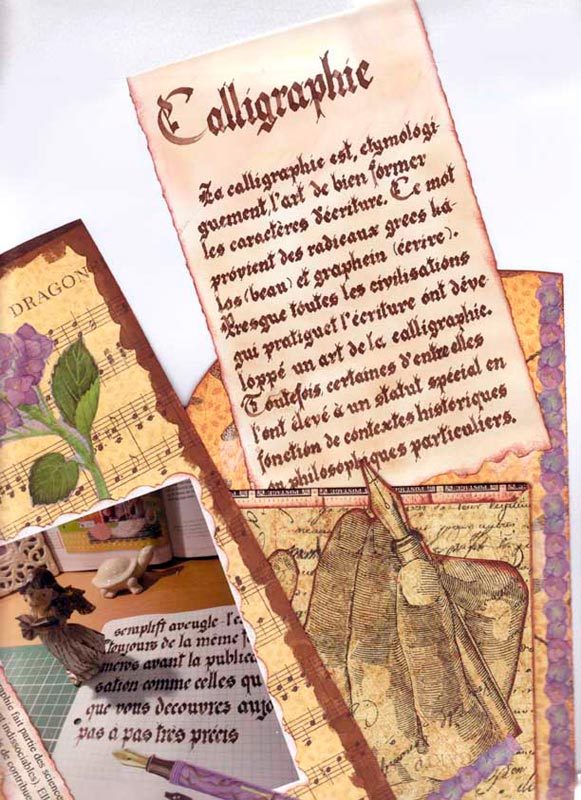 Calligraphie
La calligraphie est, etymologi
quement, l'art de bien former
les caractères d'écriture. Ce mot
provient des radicaux grecs ká
los (beau) et graphein (écrire).
Presque toutes les civilisations
qui pratiquet l'écriture ont déve
loppé un art de la calligraphie.
Toutefois, certaines d'entre elles
l'ont élevé à un statut spécial en
fonction de contextes historiques
ou philosophiques particuliers.
DRAGON
semplift aveugle
toujours de la même
mews avant la public
sation comme celles qu
que vous decouvrez aujo
pas a pas très précis
phie fait partie des sciences
nt indissociables). Ell
de contribue